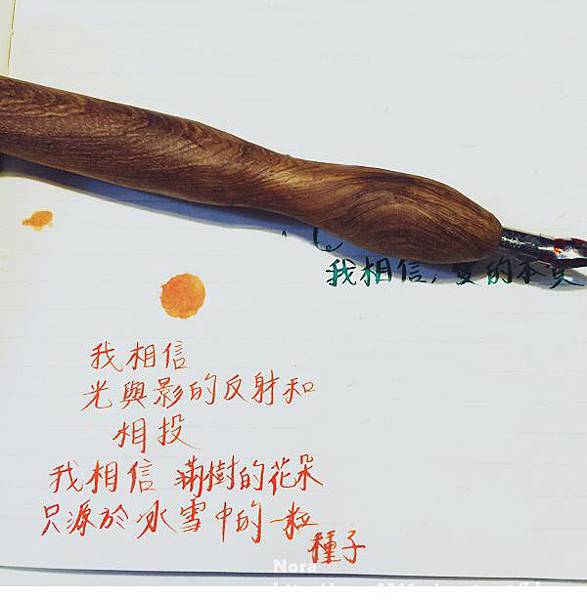 我相信,愛的本質
我相信
光與影的反射和
相投
我相信 滿樹的花朵
只源於冰雪中的一粒
種子
Nora